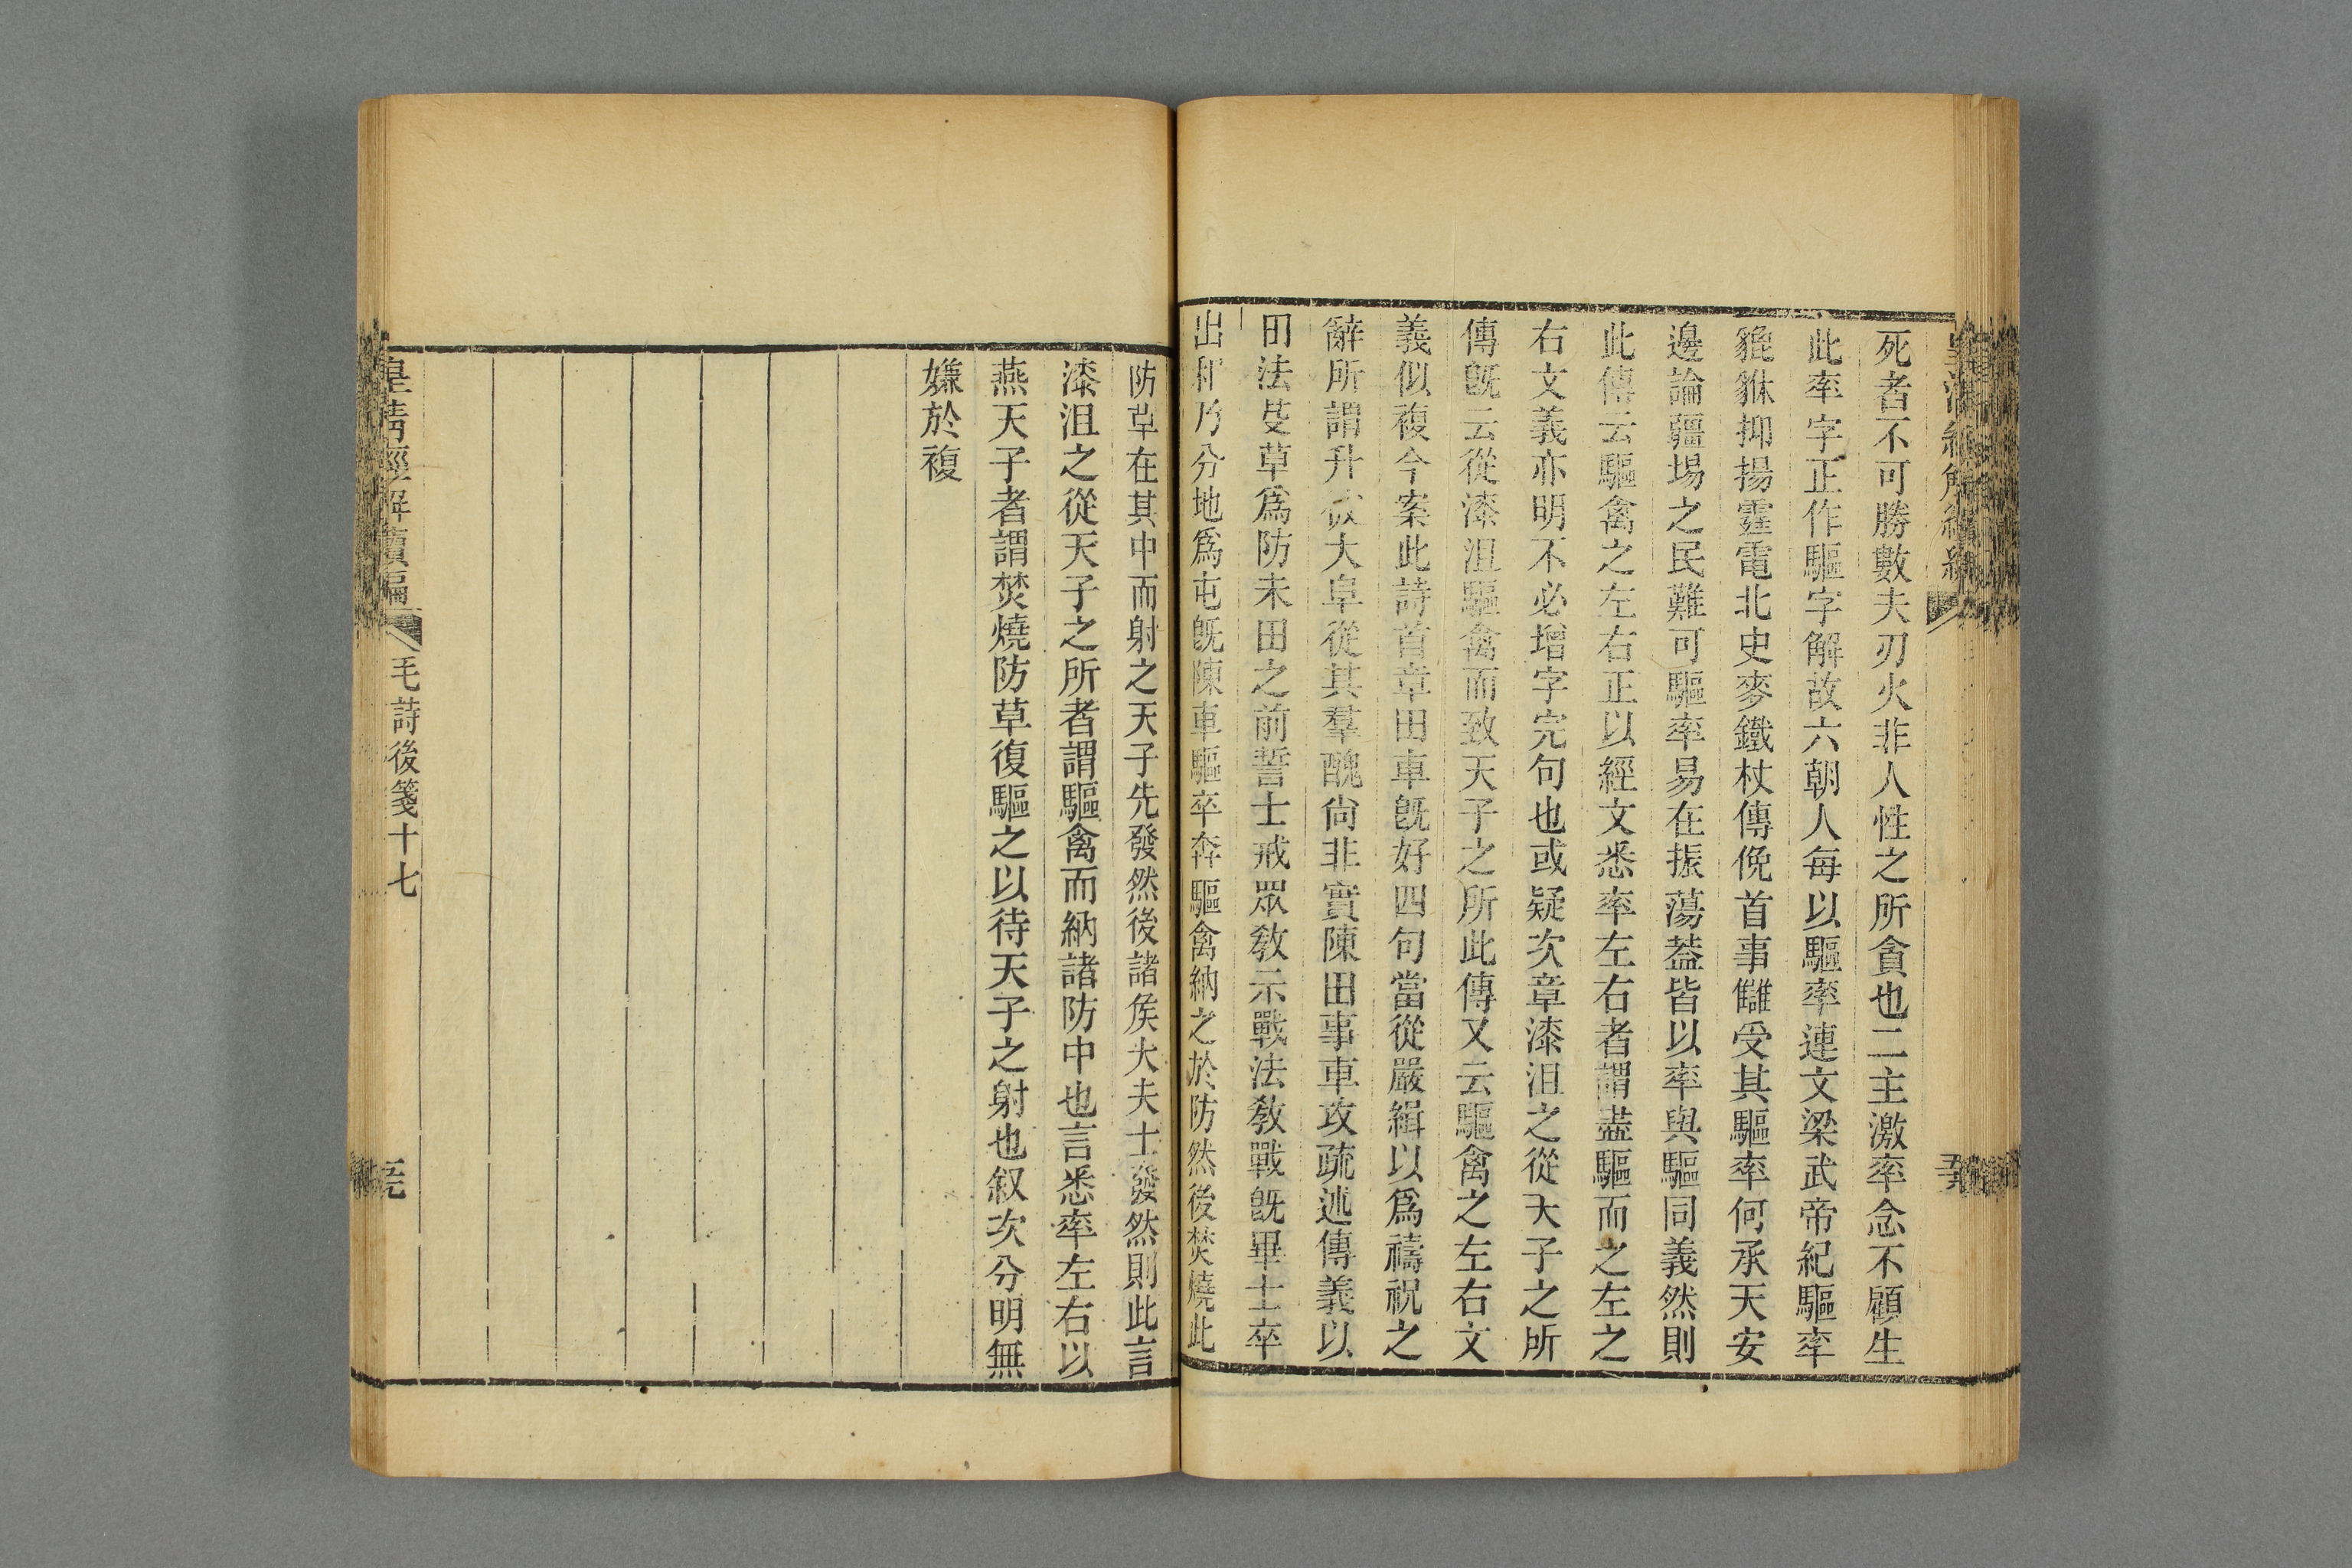 死者不可勝數夫刃火非人性之所貪也二主激率念不顧生
此率字正作驅字解故六朝人每以驅率連文梁武帝紀驅率
貔貅抑揚霆電北史麥鐵杖傳俛首事讎受其驅率何承天安
邊論疆埸之民難可驅率易在振蕩葢皆以率與驅同義然則
此傳云驅禽之左右正以經文悉率左右者謂盡驅而之左之
右文義亦明不必增字完句也或疑次章漆沮之從天子之所
傳旣云從漆沮驅禽而致天子之所此傳又云驅禽之左右文
義似複今案此詩首章田車旣好四句當從嚴緝以爲禱祝之
辭所謂升彼大阜從其羣醜尙非實陳田事車攻疏述傳義以
田法芟草爲防未田之前誓士戒眾敎示戰法敎戰旣畢士卒
出和乃分地爲屯旣陳車驅卒奔驅禽納之於防然後焚燒此
防草在其中而射之天子先發然後諸矦大夫士發然則此言
漆沮之從天子之所者謂驅禽而納諸防中也言悉率左右以
燕天子者謂焚燒防草復驅之以待天子之射也叙次分明無
嫌於複
皇清經解續編 毛詩後箋十七